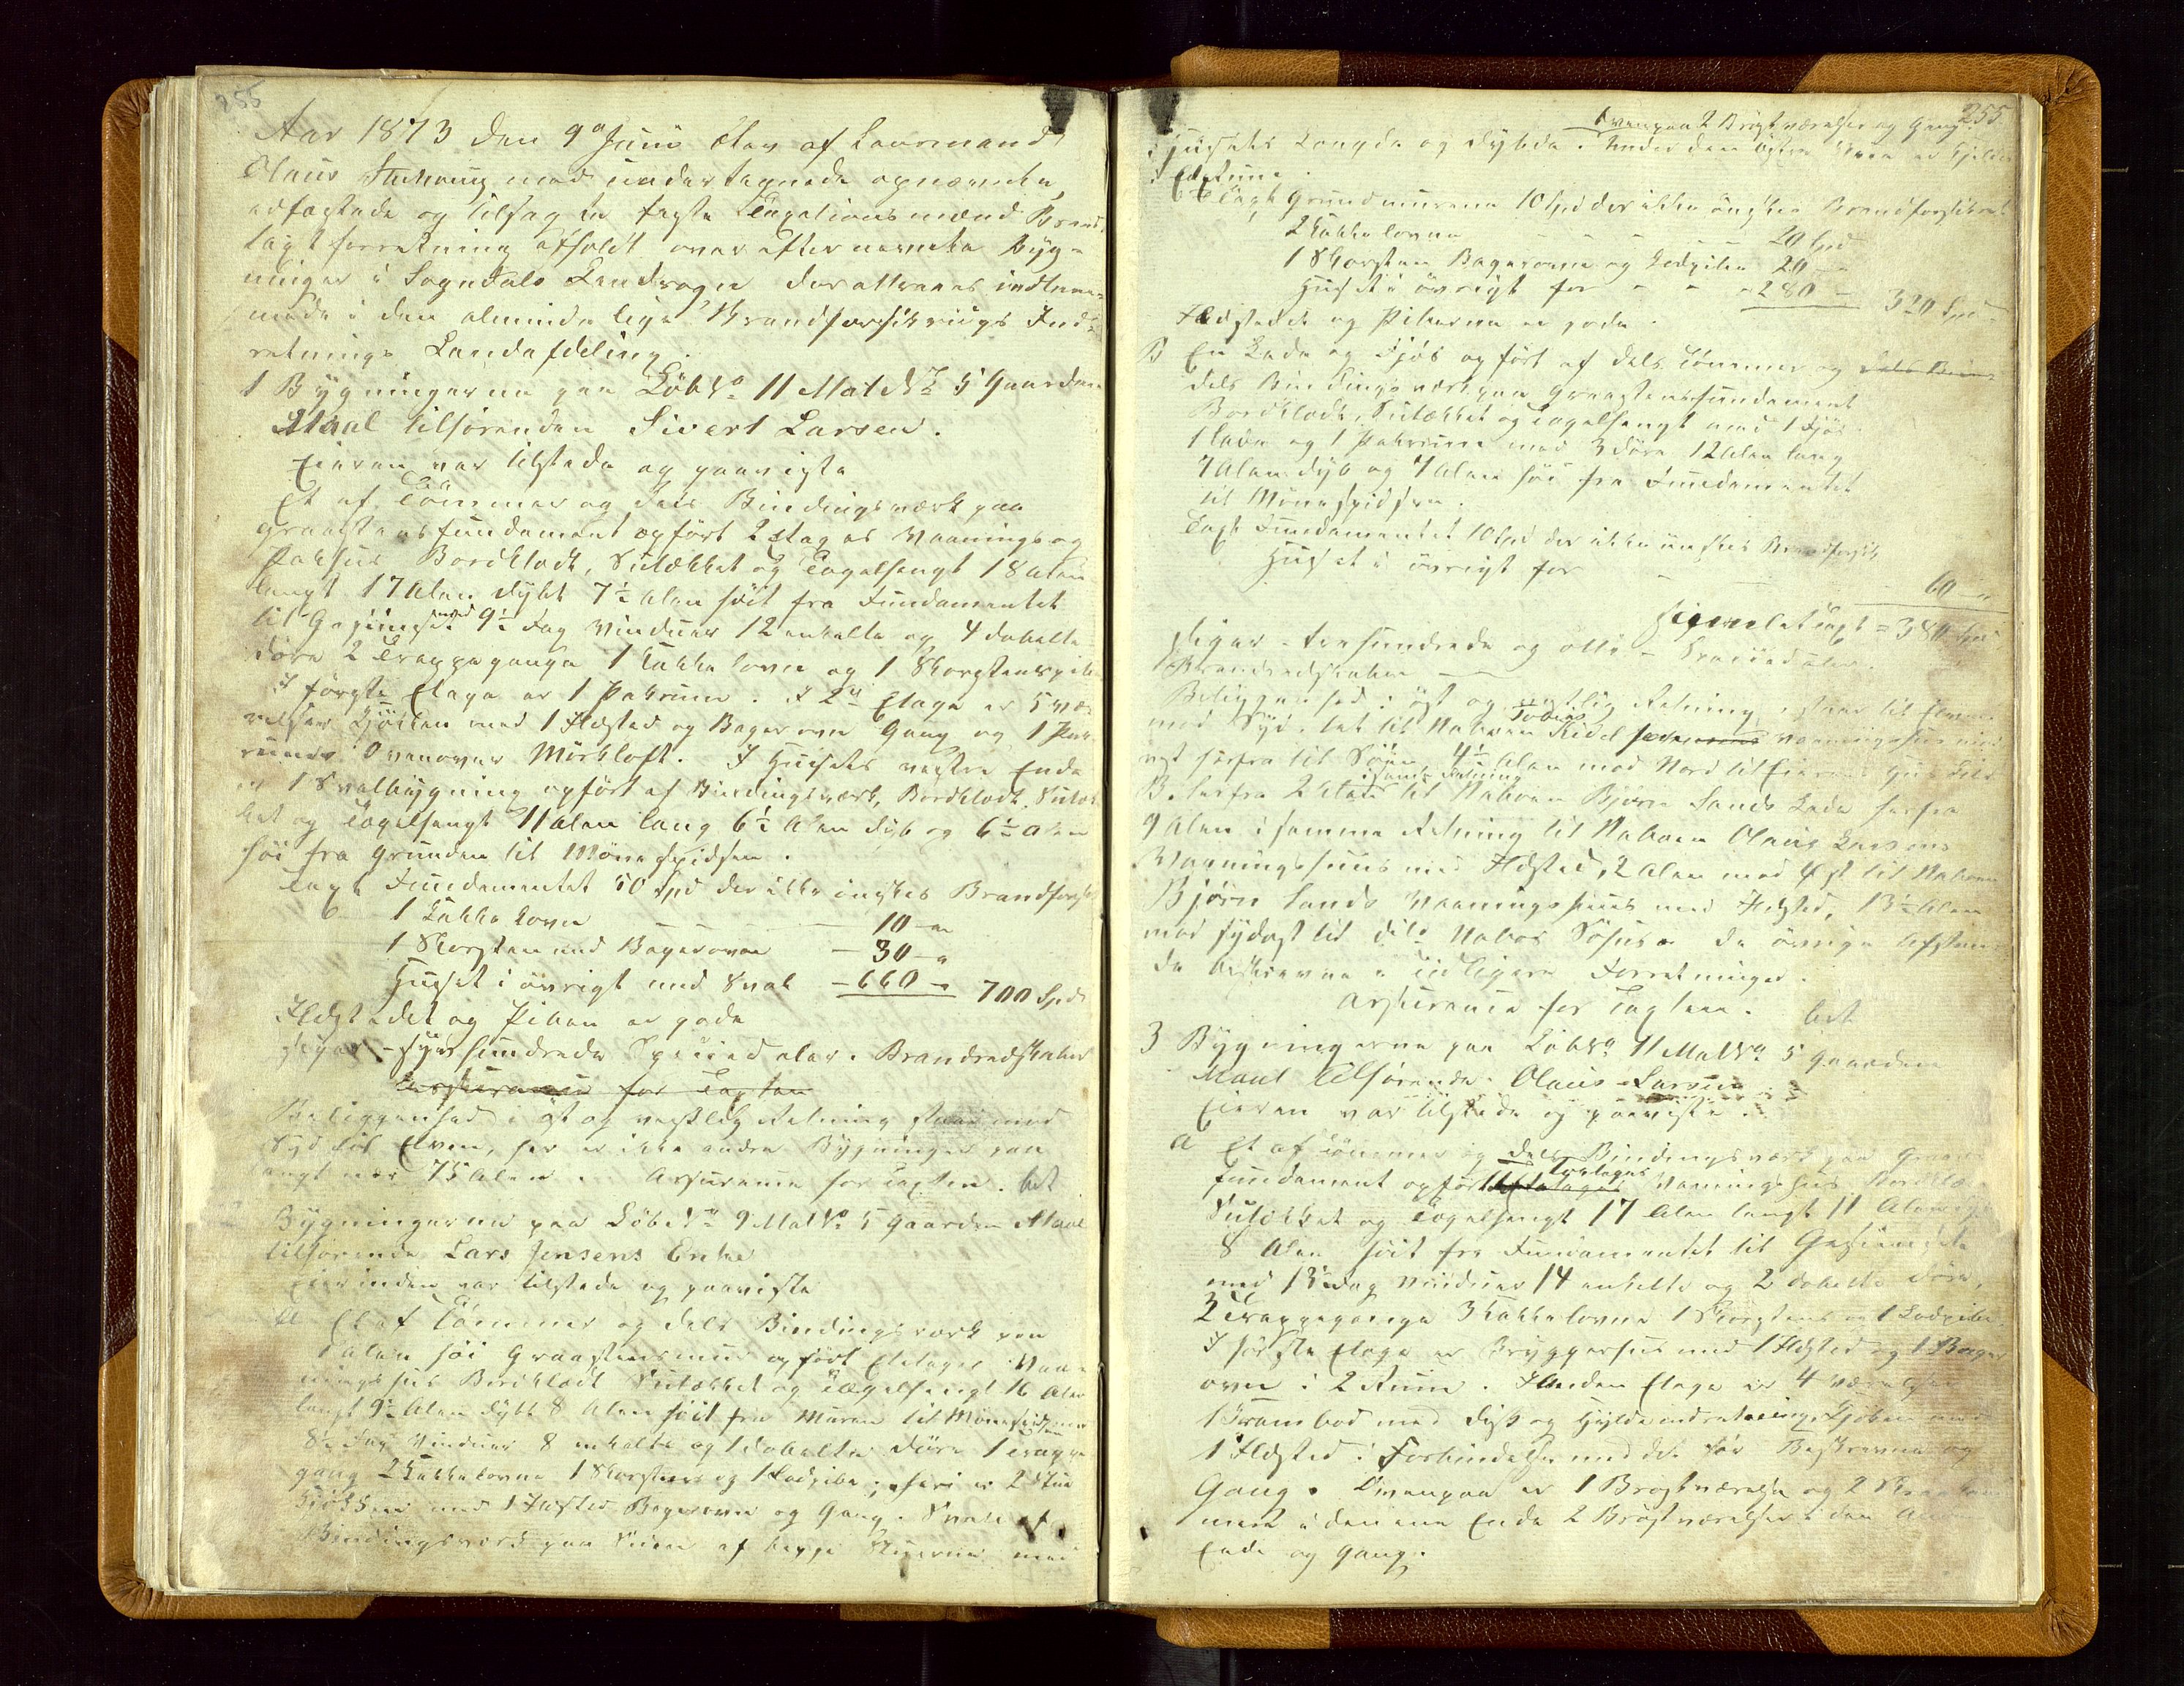 255
Aar 1873 den 9de Juni blev af Laurmand
Olaus med undertegnede opnævnte,
edfæstede og tilsagte faste Taxationsmænd Brand-
taxtforretning afholdt over efternævnte Byg-
ninger i Sogndals Landsogn der attraaes indtem-
mede i den almindelige Brandforsikrings Ind-
retnings Landafdeling.
1 Bygningerne paa Löb No 11 Mat No 5 Gaarden
Aaal tilhörenden Sivert Larsen.
Eieren var tilstede og paaviste
Et af Tömmer og dels Bindingsværk paa
graasteensfundament opfört 2 Etages Vaanings og
Pakhus Bordklædt, Sutækket og Tagelhængt 18 Alen
langt 17 Alen dybt 7½ Alen höit fra Fundamentet
til Gesimset med 9½ Fag Vinduer 12 enkelte og 4 dobelte
döre 2 Trappegange 1 Kakkelovn og 1 Skorsteenspibe
I förste Etage er 1 Pakrum. I 2den Etage er 5 væ-
relser Kjökken med 1 Ildsted og Bagerovn Gang og 1 Pak-
rum. Ovenover Mörkloft. I Huusets vestre Ende
er 1 Svalbygning opfört af Bindingsværk, Bordklædt, Sutæk-
ket og Tagelhængt 11 Alen lang 6½ Alen dyb og 6½ Alen
höi fra Grunden til Mönespidsen.
Taxt Fundamentet 50 Spd der ikke önskes Brandforsik
1 Kakkelovn - - - 10 - "
1 Skorsteen med Bagerovn - 30 - "
Huuset i övrigt med Sval - 660 - " 700 Spd
Ildstedet og Piben er gode
siger - syvhundrede Speciedaler. Brandredskaber
Assurance for Taxten
Beliggenhed i öst og vestlig Retning staar mod
Syd til Elven, her er ikke andre Bygninger paa
langt nær 75 Alen. Assurance for Taxten. bet
Bygningerne paa Löb No 9 Mat No 5 Gaarden Aaal
tilhörende Lars Jensens Enke
Eierinden var tilstede og paaviste
A Et af Tömmer og dels Bindingsværk paa
1 Alen höi Graasteensmur opfört Etages Vaa-
ningshus Bordklædt Sutækket og Tagelhængt 16 Alen
langt 9½ Alen dybt 8 Alen höit fra Muren til Mönespidsen
8½ Fag Vinduer 8 enkelte og 1 dobelte döre 1 Trappe-
gang 2 Kakkelovne 1 Skorsteen og 1 Lodpibe; heri er 2 Stue
Kjökken med 1 Ildsted Bagerovn og Gang. Sval af
Bindingsværk paa Siden af begge Stuerne med
255
Ovenpaa 2 Bröstværelser og Gang.
i Huusets Længde og Dybde. Under den östre Stue er Kjelder
i Et Rum.
Taxt Grundmuren 10 Spd der ikke önskes Brandforsikret
2 Kakkelovne - - - - 20 Spd
1 Skorsten Bagerovn og Lodpibe 20 - "
Huset i övrigt for - - - 280 - 320 Spd
Ildstedet og Piberne er gode.
B En Lade og Fjös opfört af dels Tömmer og
dels Bindingsværk paa Graasteensfundament
Bordklædt, Sutækket og Tagelhængt med 1 Fjös
1 Lade og 1 Pakrum med 3 döre 12 Alen lang
7 Alen dyb og 7 Alen höi fra Fundamentet
til Mönespidsen.
Taxt Fundamentet 10 Spd der ikke önskes Brandforsik
Huset i övrigt for - - 60 - "
Samlet Taxt = 380 Spd
siger - trehundrede og otti - Speciedaler.
Brandredskaber
Beliggenhed i öst og vestlig Retning staar til Elven
mod Syd. tet til Naboen Tobias Vaaningshus med
vest herfra til Söen, 4½ Alen mod Nord til Eierens Hus Litr
B. herfra 2 Alen i samme Retning til Naboen Björn Sands Lade herfra
9 Alen i samme Retning til Naboen Olaus Larsens
Vaaningshuus med Ildsted, 2 Alen mod Öst til Naboen
Björn Sands Vaaningshuus med Ildsted, 13½ Alen
mod sydost til dito Nabos Söhus. De övrige Afstan-
de beskrevne i Tidligere Forretninger.
Assurance for Taxten. bet
3 Bygningerne paa Löb No 11 Mat No 5 Gaarden
Aaal tilhörende Olaus Larsen
Eieren var tilstede og paaviste.
A Et af Tömmer og dels Bindingsværk paa Graa-
fundament opfört Toetages Vaaningshus Bordklæ-
Sutækket og Tagelhængt 17 Alen langt 11 Alen
8 Alen höit fra Fundamentet til Gesimset
med 13 Fag Vinduer 14 enkelte og 2 dobelte döre,
3 Trappegange 3 Kakkelovne 1 Skorsteen og 1 Lodpibe.
I förste Etage er Bryggerhus med 1 Ildsted og 1 Bager-
ovn i 2 Rum. I Anden Etage er 4 værelser
1 Krambod med Disk og Hyldeindretning Kjökken med
1 Ildsted i Forbindelse med de för Beskrevne og
Gang. Ovenpaa er 1 Bröstværelse og 2
mere i den ene Ende 2 Bröstværelser i den
Ende og Gang.